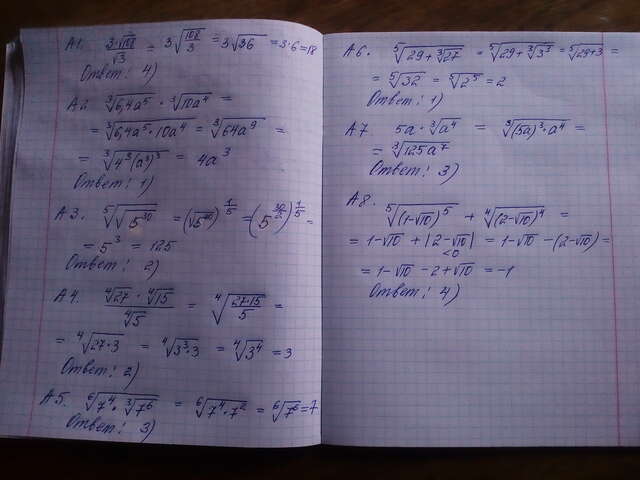 А1. 3·√108/√3 = 3√108/3 = 3√36 = 3·6 = 18
Ответ: 4)
А2 ∛6,4a⁵ · ∛10a⁴ =
= ∛6,4a⁵·10a⁴ = ∛64a⁹ =
= ∛4³(a³)³ = 4a³
Ответ: 1)
А3. ⁵√√5³⁰ = (√5³⁰)^1/5 = (5^30/2)^1/5 =
= 5³ = 125
Ответ: 2)
А4. ⁴√27 · ⁴√15/⁴√5 = ⁴√27·15/5 =
= ⁴√27·3 = ⁴√3³·3 = ⁴√3⁴ = 3
Ответ: 2)
А5. ⁶√7⁴·∛7⁶ = ⁶√7⁴·7² = ⁶√7⁶ = 7
Ответ: 3)
А6. ⁵√29+∛27 = ⁵√29+∛3³ = ⁵√29+3 =
= ⁵√32 = ⁵√2⁵ = 2
Ответ: 1)
А7 5a·∛a⁴ = ∛(5a)³·a⁴ =
= ∛125a⁷
Ответ: 3)
А8.
⁵√(1-√10)⁵ + ⁴√(2-√10)⁴ =
= 1-√10 + |2-√10| = 1-√10 -(2-√10) =
<0
= 1-√10 -2+√10 = -1
Ответ: 4)